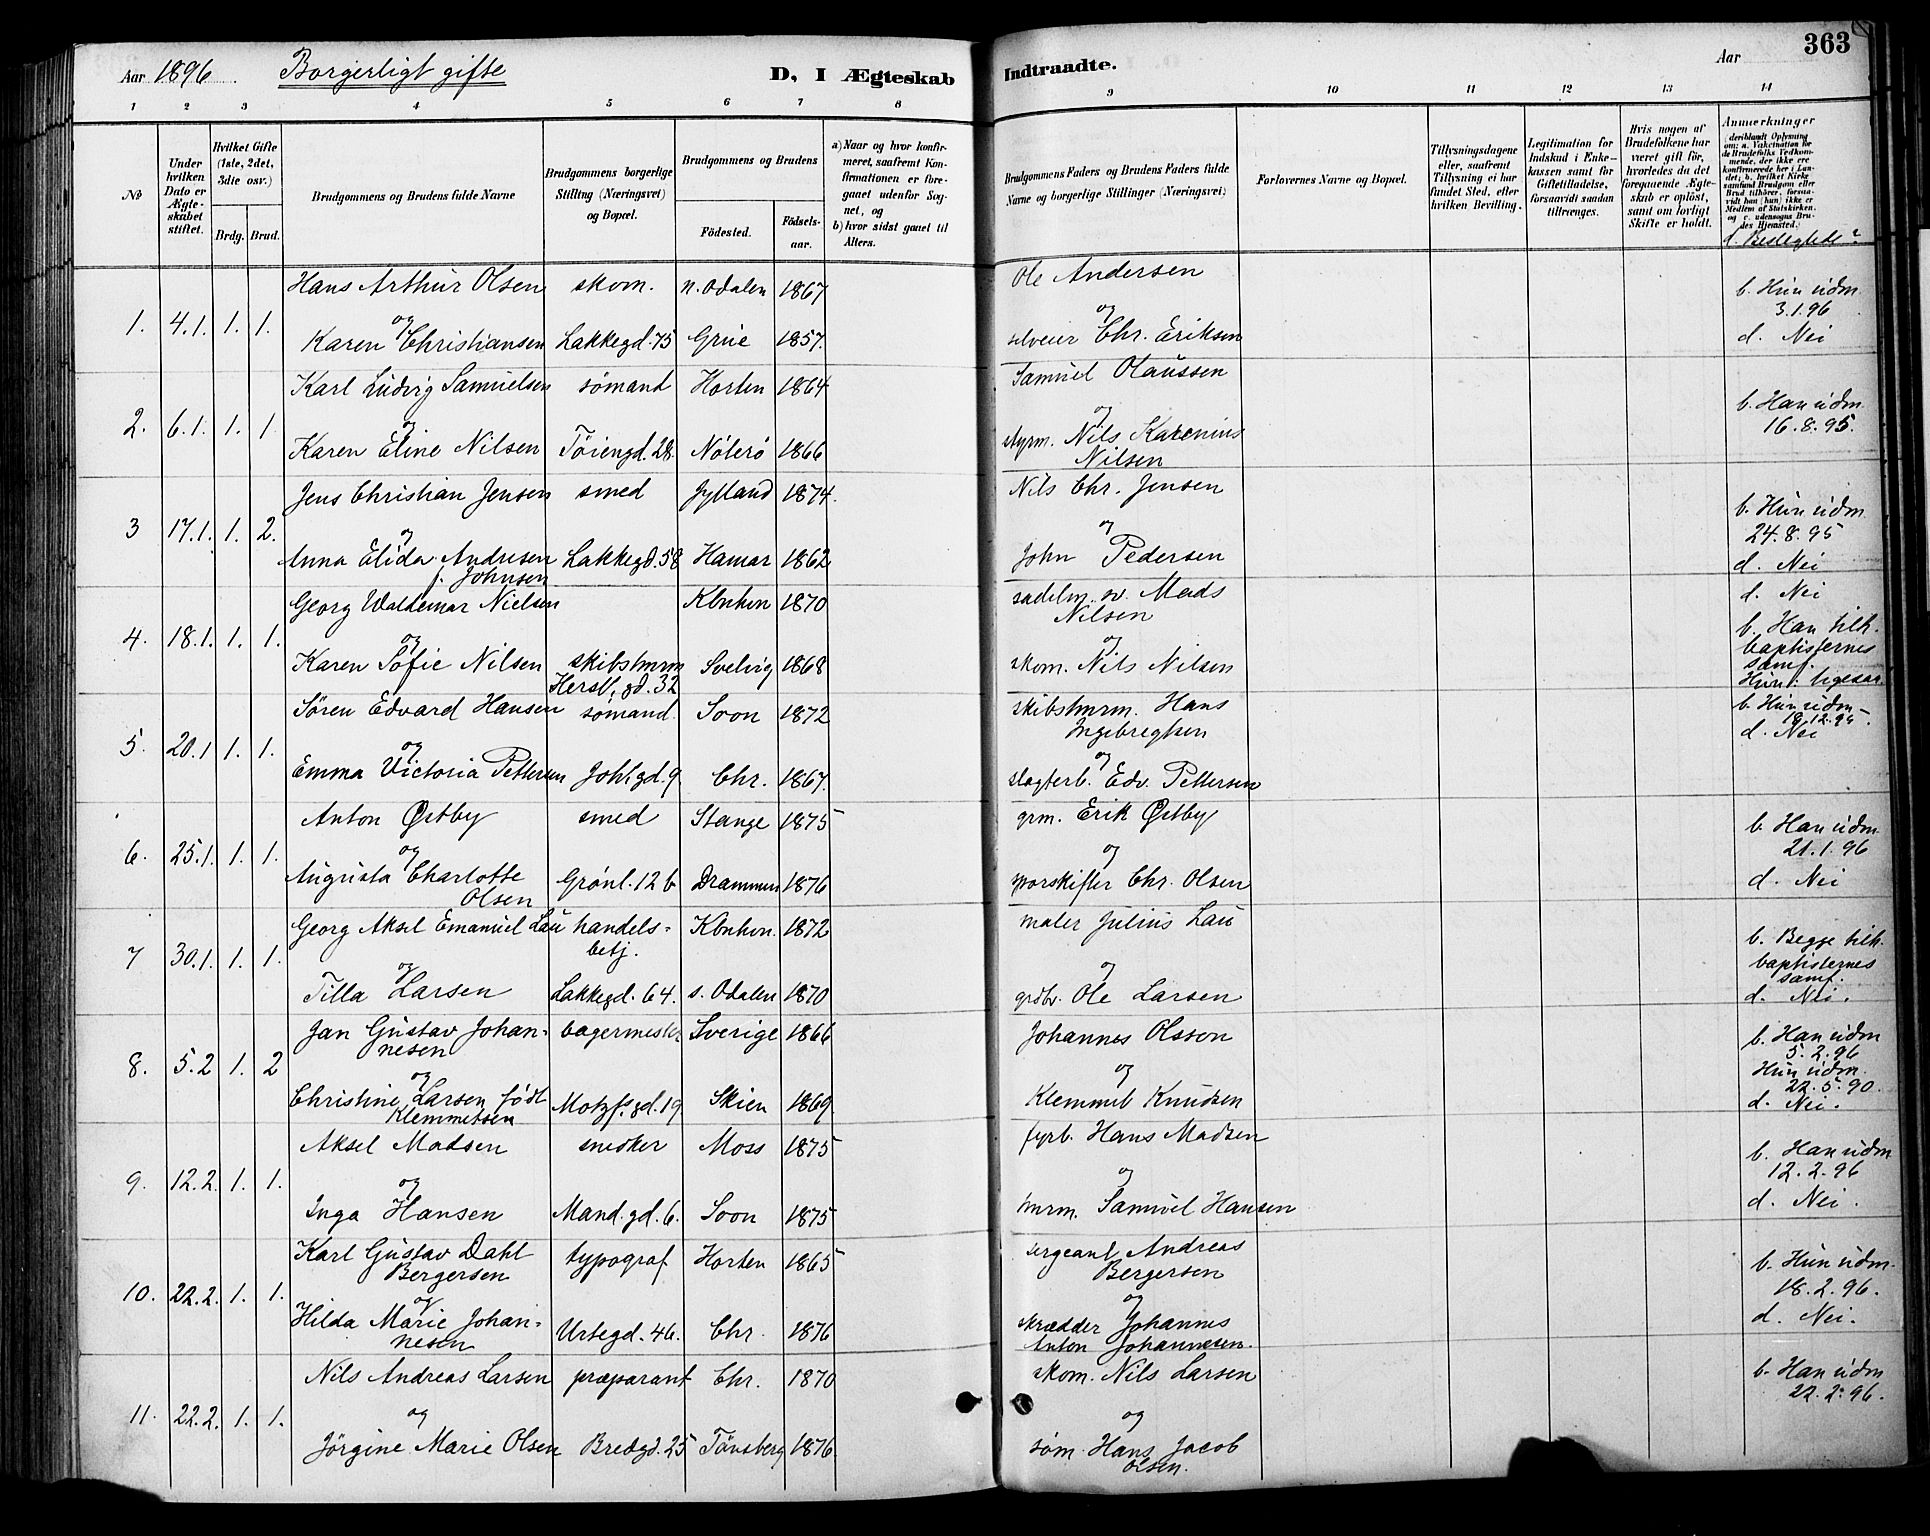 Aar 1896 Borgerligt gifte D, I Ægteskab
Indtraadte. Aar 363
1 2 3 4 5 6 7 8 9 10 11 12 13 14
No
Under hvilken Dato er Ægteskabet stiftet.
Hvilket Gifte (1ste, 2det, 3dte osv.)
Brdg. Brud.
Brudgommens og Brudens fulde Navne
Brudgommens borgerlige Stilling (Næringsvei) og Bopæl.
Brudgommens og Brudens
Födested. Födsels-aar.
a) Naar og hvor konfirmeret, saafremt Konfirmationen er foregaaet udenfor Sognet, og
b) hvor sidst gaaet til Alters.
Brudgommens Faders og Brudens Faders fulde Navne og borgerlige Stillinger (Næringsvei)
Forlovernes Navne og Bopæl.
Tillysningsdagene eller, saafremt Tillysning ei har fundet Sted, efter hvilken Bevilling.
Legitimation for Indskud i Enkekassen samt for Giftetilladelse, forsaavidt saadan tiltrænges.
Hvis nogen af Brudefolkene har været gift för, hvorledes da det foregaaende Ægteskab er oplöst, samt om lovligt Skifte er holdt.
Anmærkninger (deriblandt Oplysning om: a. Vakcination for de Brudefolks Vedkommende, der ikke ere konfirmerede her i Landet; b. hvilket Kirkesamfund Brudgom eller Brud tilhörer, forsaavidt han (hun) ikke er Medlem af Statskirken, og c. udensogns Brudes Hjemsted.)
d. Beslegtede?
Hans Arthur Olsen skom. n. Odalen 1867 Ole Andersen b. Hun udm.
1. 4.1. 1. 1. og og 3.1.96
Karen Christiansen Lakkegd. 75 Grue 1857. selveier Chr. Eriksen d. Nei
Karl Ludvig Samuelsen sømand Horten 1864 Samuel Olaussen
2. 6.1. 1. 1. og og b. Han udm 16.8.95.
Karen Eline Nilsen Tøiengd. 28. Nøterø 1866 styrm. Nils Karenius
Nilsen
Jens Christian Jensen smed Jylland 1874. Nils Chr. Jensen
3 17.1. 1. 2. og og b. Hun udm 24.8.95
Anna Elida Andresen Lakkegd. 58 Hamar 1862 John Pedersen d. Nei
f. Johnsen
Georg Waldemar Nielsen Kbnhvn 1870 sadelm. sv. Mads d. Nei
Nilsen
4. 18.1. 1. 1. og og b. Han tilh. baptisternes samf.
Karen Sofie Nilsen skibstmrm Svelvig 1868 skom. Nils Nilsen
Hersl. gd. 32 Hun: ligesaa.
Søren Edvard Hansen sømand. Soon 1872 skibstmrm. Hans b. Hun udm
Ingebregtsen 18.12.95.
5. 20.1 1. 1. og og d. Nei
Emma Victoria Pettersen Johs gd. 9 Chr. 1867. slagterb. Edv. Pettersen
Anton Østby smed Stange 1875 grm. Erik Østby
6. 25.1. 1. 1. og og b. Han udm 21.1.96
Augusta Charlotte Grønl. 12 b Drammen 1876 sporskifter Chr. Olsen d. Nei
Olsen
Georg Aksel Emanuel Lau handels- Kbnhvn. 1872 maler Julius Lau
betj.
7 30.1. 1. 1. og og b. Begge tilh. baptisternes samf.
Tilla Larsen Lakkegd. 64. s. Odalen 1870 grdbr. Ole Larsen d. Nei.
Jan Gustav Johan- bagermester Sverige 1866 Johannes Olsson b. Han udm
nesen 5.2.96
8. 5.2 1. 2 og og Hun udm. 22.5.90.
Christine Larsen født Motzfs. gd. 19 Skien 1869 Klemmet Knudsen d. Nei.
Klemmetsen
Aksel Madsen snedker Moss 1875 fyrb. Hans Madsen
9. 12.2. 1. 1. og og b. Han udm 12.2.96
Inga Hansen Mand. gd. 6. Soon 1875 tmrm. Samuel Hansen d. Nei.
Karl Gustav Dahl typograf Horten 1865 sergeant Andreas
Bergersen Bergersen
10. 22.2. 1. 1. og og b. Hun udm. 18.2.96.
Hilda Marie Johan- Urtegd. 46. Chr. 1876 skrædder Johannes d. Nei.
nesen Anton Johannesen.
Nils Andreas Larsen præparant Chr. 1870 skom. Nils Larsen b. Han udm
22.2.96.
11. 22.2. 1. 1. og og
Jörgine Marie Olsen Bredgd. 25 Tönsberg 1876. søm. Hans Jacob
Olsen.